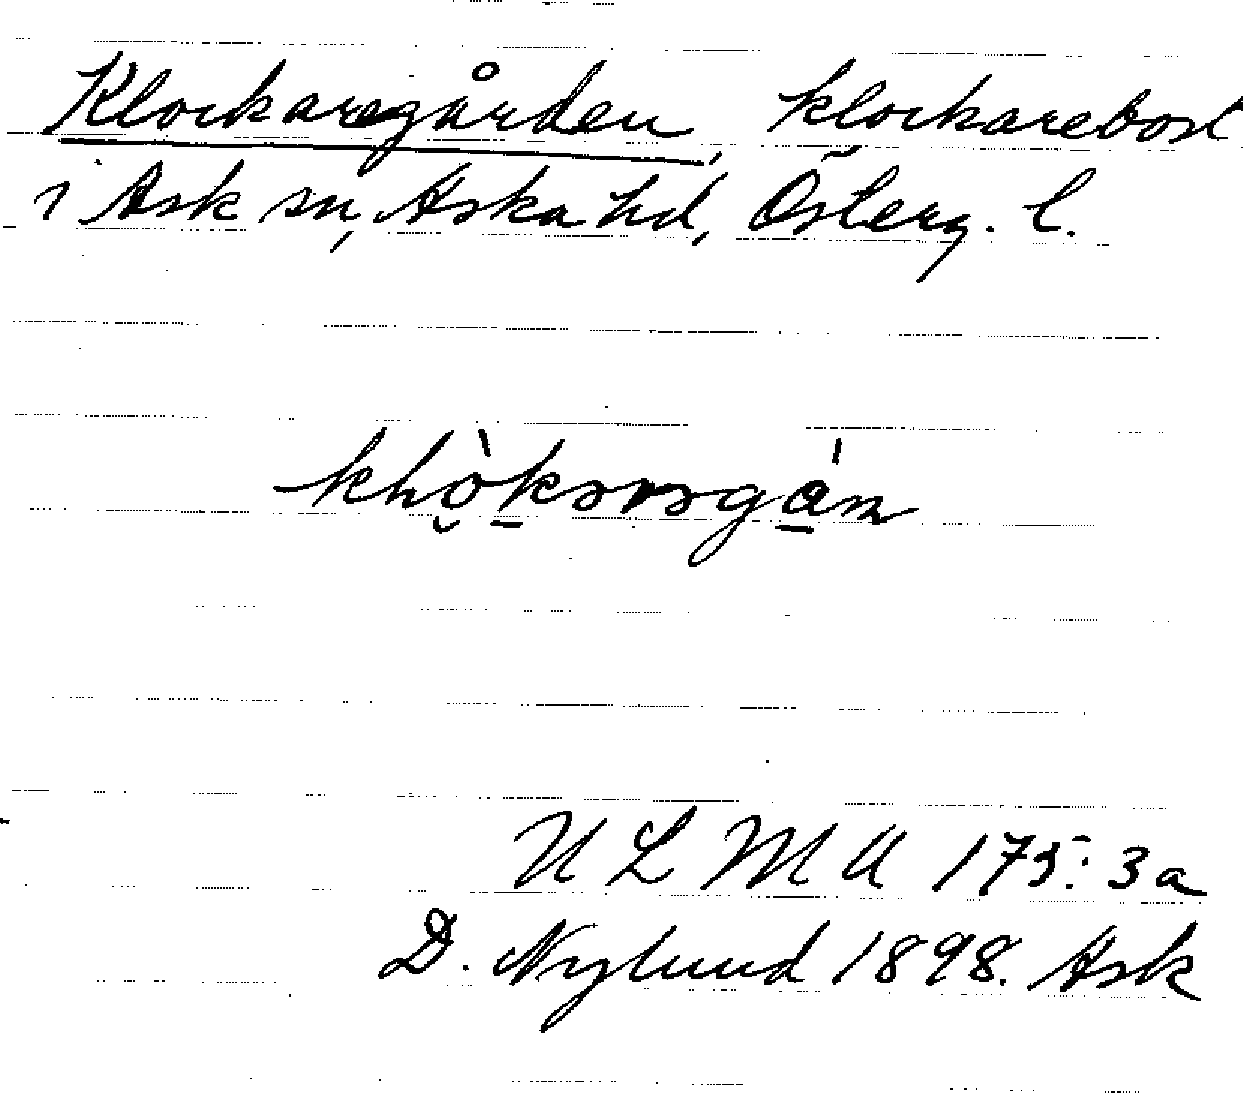 Klockaregården, klockarebost
i Ask sn, Aska hd, Österg. l.
ULMA 175:3a
D. Nylund 1898. Ask